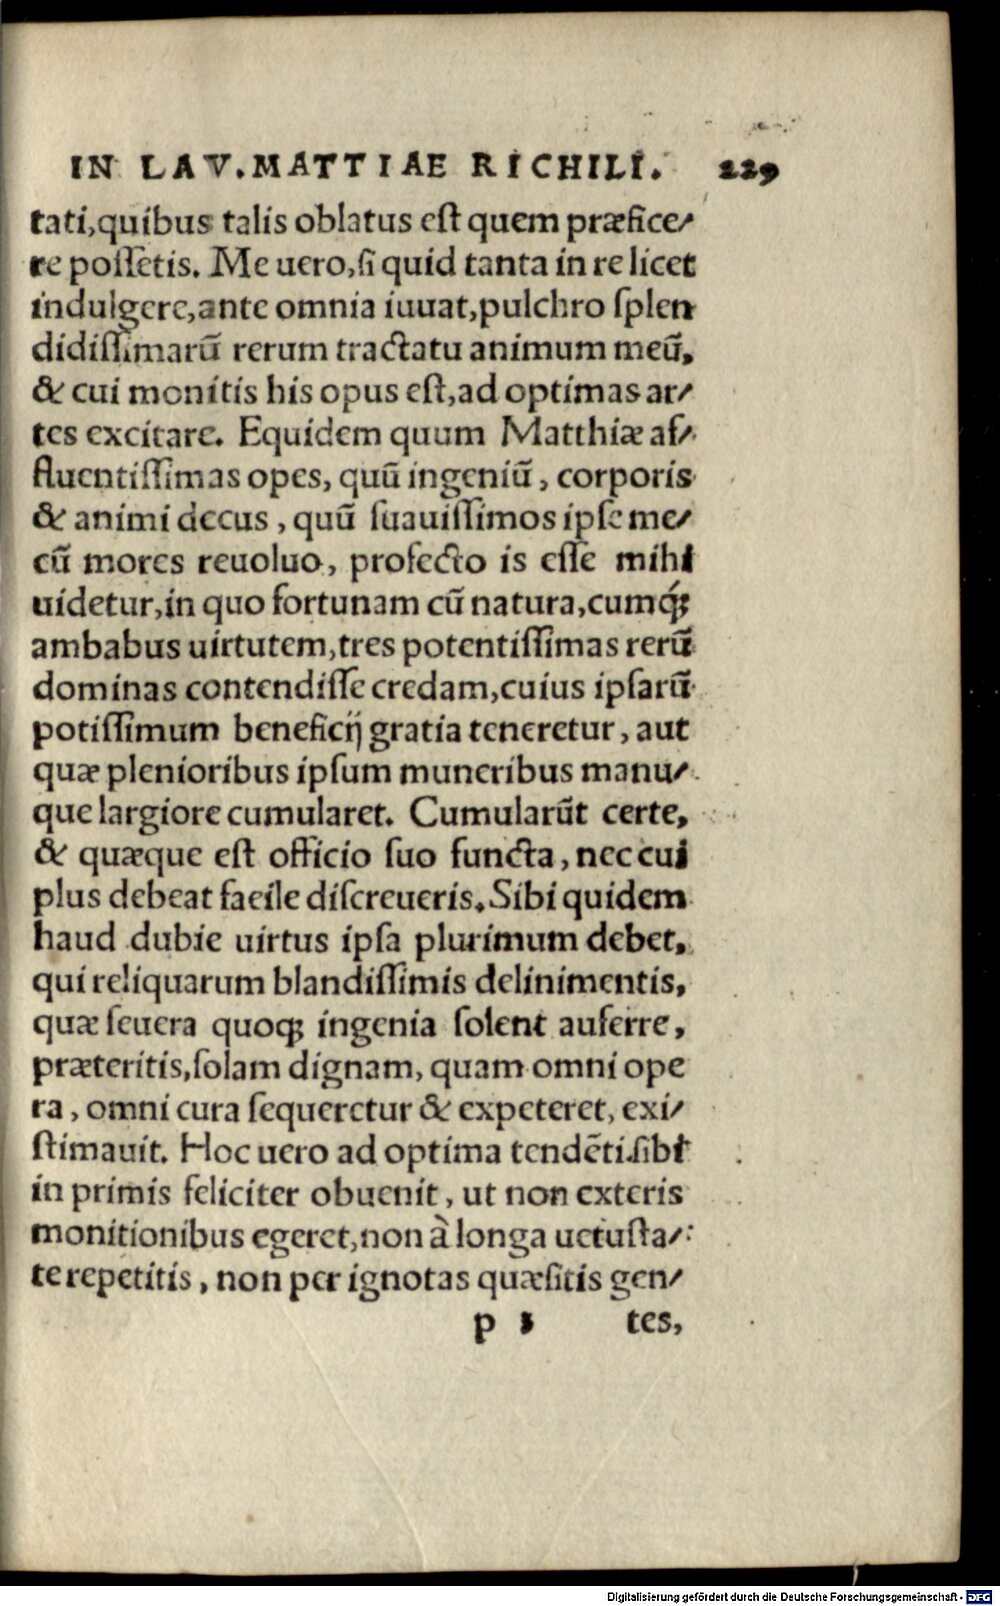 IN LAV. MATTIAE RICHILI. 229
tati, quibus talis oblatus est quem præfice/
re possetis. Me uero, si quid tanta in re licet
indulgere, ante omnia iuuat, pulchro splen
didissimarũ rerum tractatu animum meũ,
& cui monitis his opus est, ad optimas ar/
tes excitare. Equidem quum Matthiæ af/
fluentissimas opes, quũ ingeniũ, corporis
& animi decus, quũ suauissimos ipse me/
cũ mores reuoluo, profecto is esse mihi
uidetur, in quo fortunam cũ natura, cumq́;
ambabus uirtutem, tres potentissimas rerũ
dominas contendisse credam, cuius ipsarũ
potissimum beneficij gratia teneretur, aut
quæ plenioribus ipsum muneribus manu/
que largiore cumularet. Cumularũt certe,
& quæque est officio suo functa, nec cui
plus debeat facile discreueris. Sibi quidem
haud dubie uirtus ipsa plurimum debet,
qui reliquarum blandissimis delinimentis,
quæ seuera quoq; ingenia solent auferre,
præteritis, solam dignam, quam omni ope
ra, omni cura sequeretur & expeteret, exi/
stimauit. Hoc uero ad optima tendẽti sibi
in primis feliciter obuenit, ut non exteris
monitionibus egeret, non à longa uetusta/
te repetitis, non per ignotas quæsitis gen/
p 3 tes,
Digitalisierung gefördert durch die Deutsche Forschungsgemeinschaft - DFG